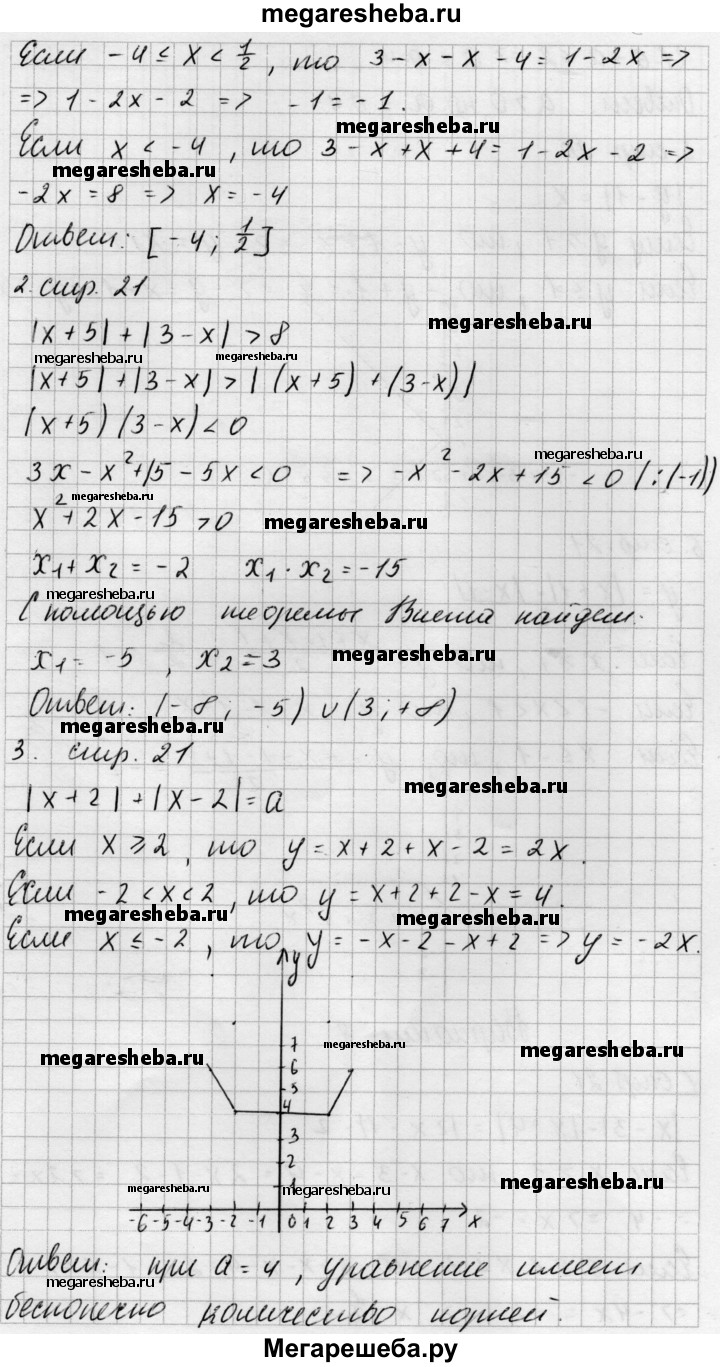 megaresheba.ru
Если -4 ≤ x < 1/2, то 3 - x - x - 4 = 1 - 2x =>
=> 1 - 2x - 2 => -1 = -1.
megaresheba.ru
Если x < -4, то 3 - x + x + 4 = 1 - 2x - 2 =>
megaresheba.ru
-2x = 8 => x = -4
Ответ: [-4; 1/2]
2. стр. 21
|x + 5| + |3 - x| > 8
megaresheba.ru
megaresheba.ru megaresheba.ru
|x + 5| + |3 - x| > |(x + 5) + (3 - x)|
(x + 5)(3 - x) < 0
megaresheba.ru
3x - x² + 15 - 5x < 0 => -x² - 2x + 15 < 0 (:(-1))
megaresheba.ru
x² + 2x - 15 > 0
megaresheba.ru
x₁ + x₂ = -2 x₁ · x₂ = -15
megaresheba.ru
С помощью теоремы Виета найдем:
x₁ = -5, x₂ = 3
megaresheba.ru
Ответ: (-∞; -5) ∪ (3; +∞)
megaresheba.ru
3. стр. 21
|x + 2| + |x - 2| = a
megaresheba.ru
Если x ≥ 2, то y = x + 2 + x - 2 = 2x.
Если -2 < x < 2, то y = x + 2 + 2 - x = 4.
megaresheba.ru megaresheba.ru
Если x ≤ -2, то y = -x - 2 - x + 2 => y = -2x.
y
7
megaresheba.ru megaresheba.ru megaresheba.ru
6
5
4
3
2
1
megaresheba.ru megaresheba.ru megaresheba.ru
-6 -5 -4 -3 -2 -1 0 1 2 3 4 5 6 7 x
Ответ: при a = 4, уравнение имеет
megaresheba.ru
бесконечно количество корней.
Мегарешеба.ру